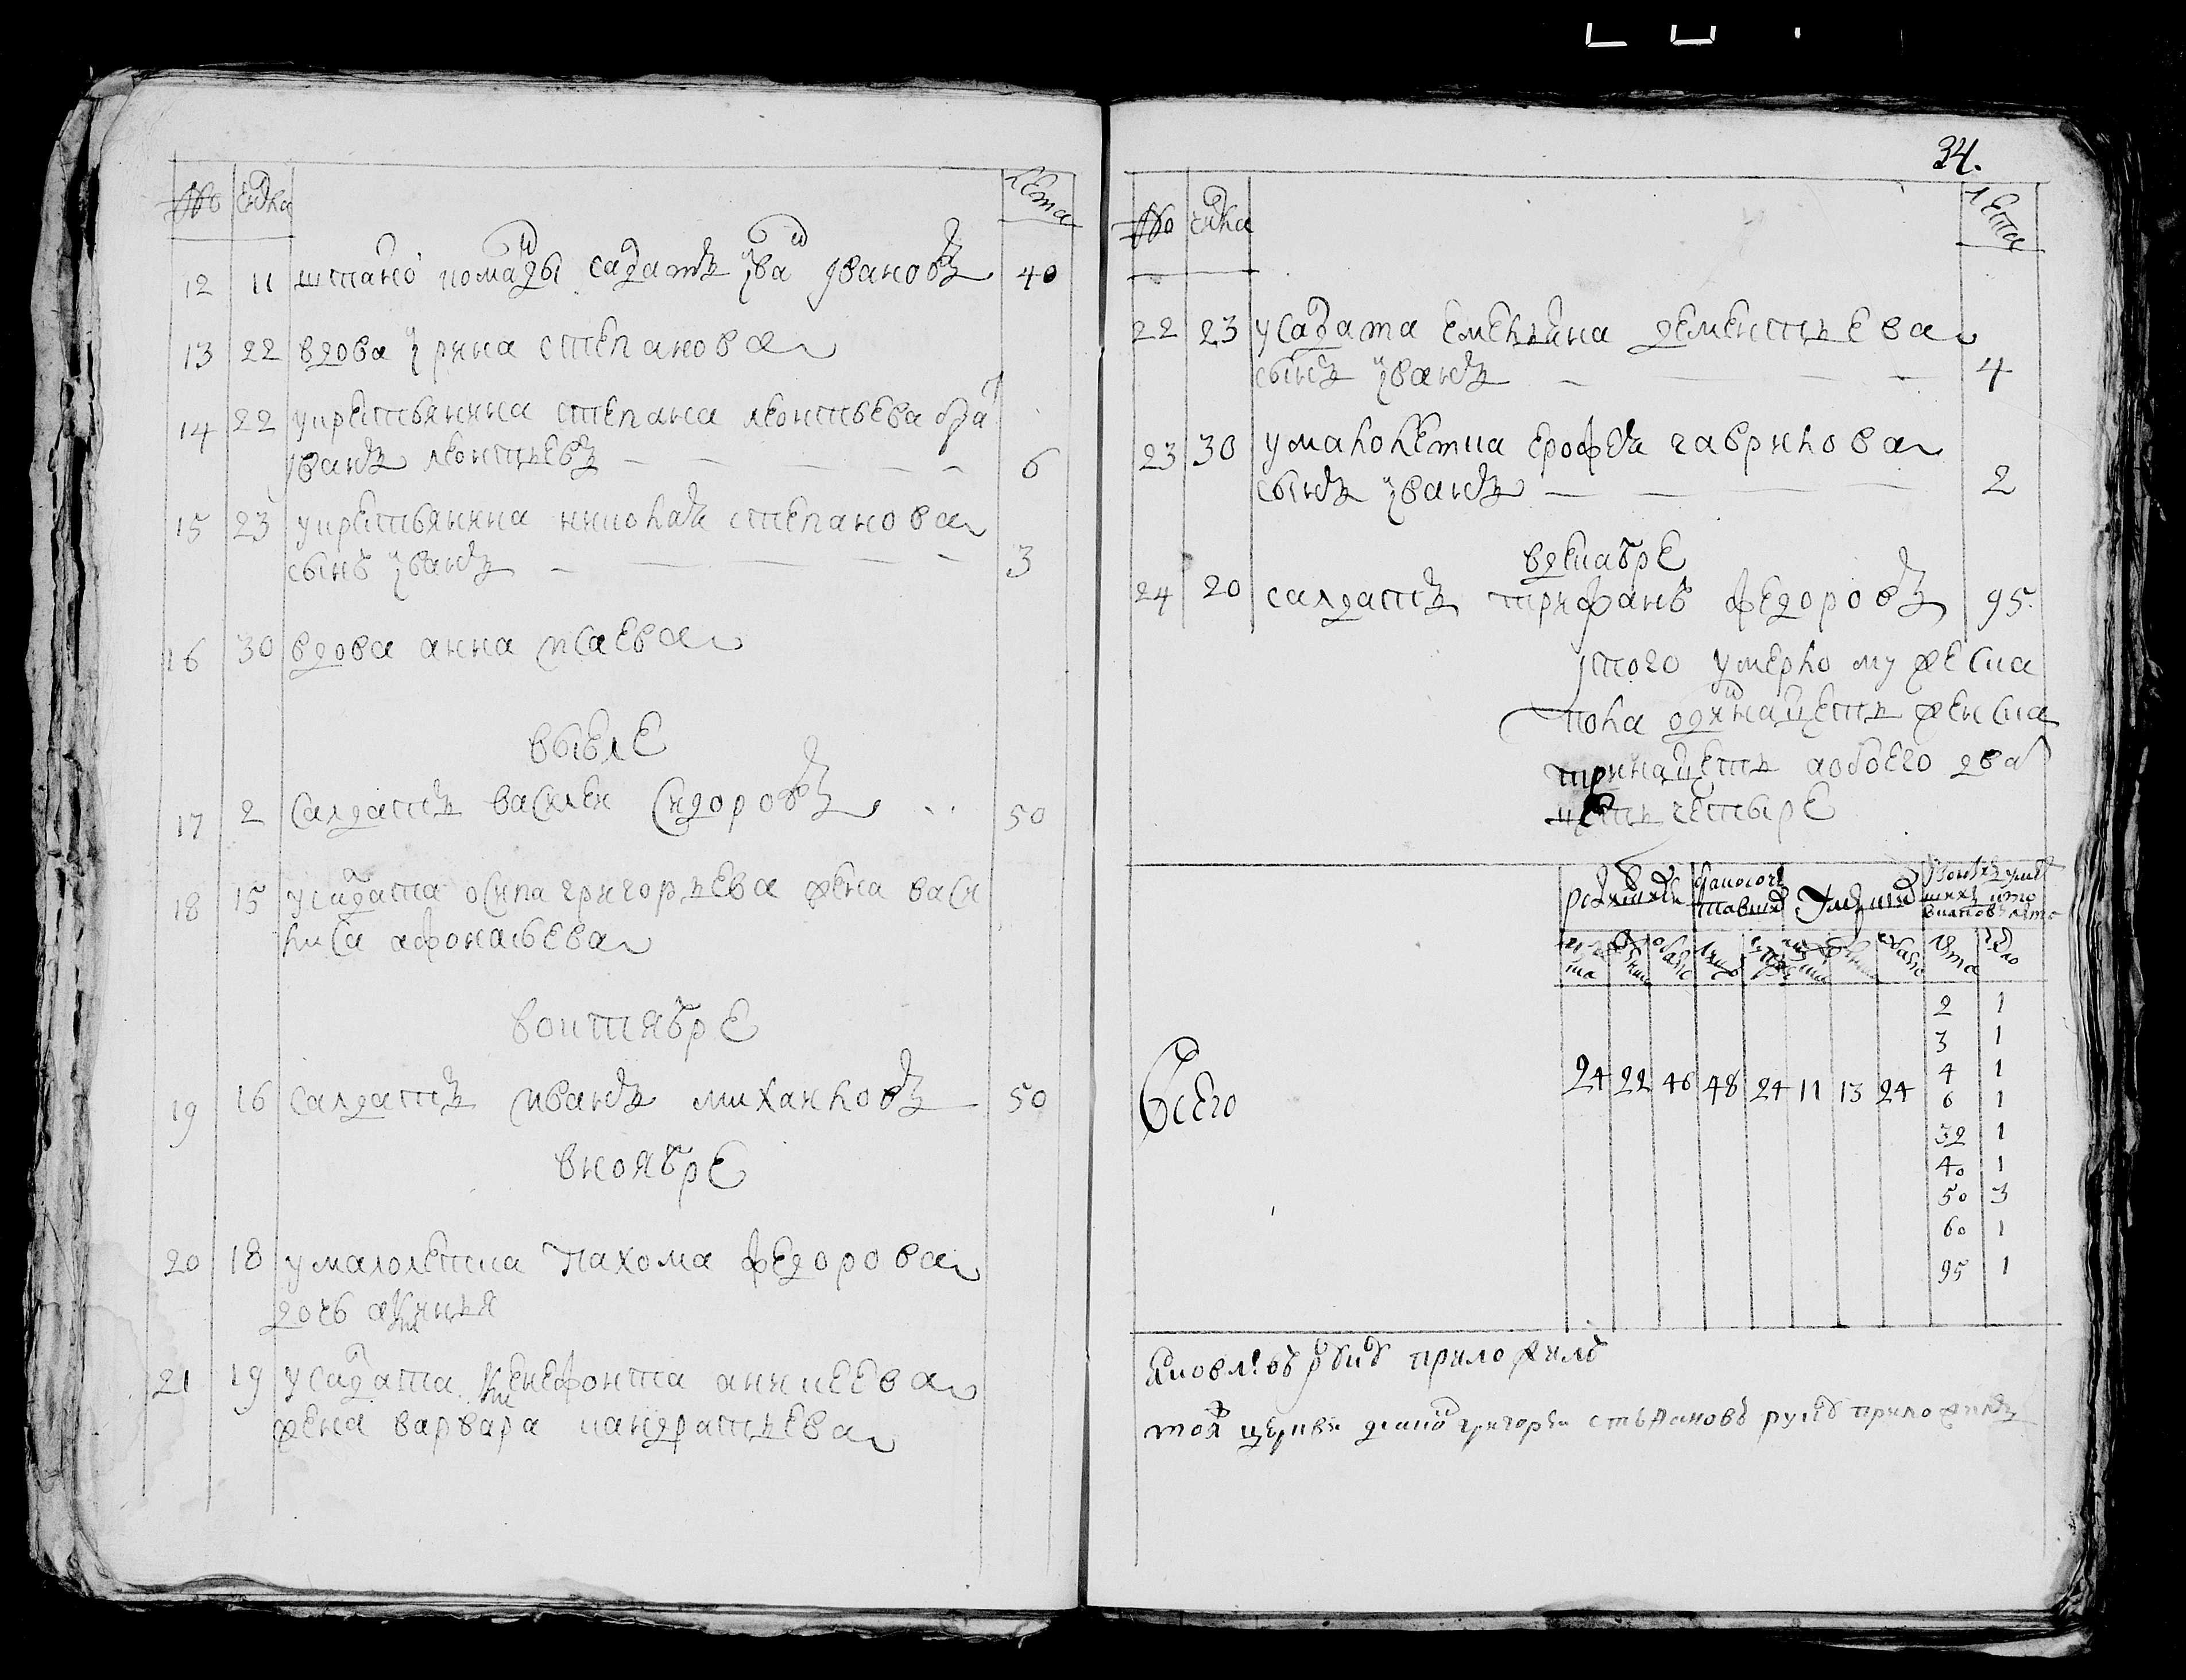 № числа лета
12 11 штатной команды салдатъ иванъ ивановъ 40
13 22 вдова ирина степанова
14 22 у крестьянина степана леонтьева братъ
иванъ леонтьевъ 6
15 23 у крестьянина николая степанова
сынъ иванъ 3
16 30 вдова анна исаева
в июле
17 2 салдатъ василеи сидоровъ 50
18 15 у салдата осипа григорьева жена васи
лиса афонасьева
в октябре
19 16 салдатъ иванъ михаиловъ 50
в ноябре
20 18 у малолетка пахома федорова
дочь
21 19 у салдата ксенефонта аникеева
жена варвара кандратьева
34.
№ числа лета
22 23 у салдата емельяна дементьева
сынъ иванъ 4
23 30 у малолетка ерофея гаврилова
сынъ иванъ 2
в декабре
24 20 салдатъ трифанъ федоровъ 95.
итого умерло мужеска
пола одиннатцеть женска
тринатцеть а обоего два
цеть четыре
Всего 24 22 46 48 24 11 13 24
2 1
3 1
4 1
6 1
32 1
40 1
50 3
60 1
95 1
яковлевъ руку приложилъ
тоя церкви григореи степановъ руку приложилъ